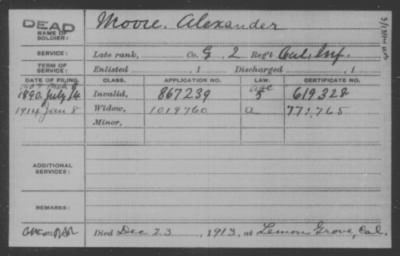 DEAD
NAME OF SOLDIER: Moore, Alexander
SERVICE: Late rank, Co. G, 2 Reg't Cal. Inf.
TERM OF SERVICE: Enlisted , 1 Discharged , 1
DATE OF FILING. CLASS. APPLICATION NO. LAW. CERTIFICATE NO.
1907
age
1890 July 14 Invalid, 867239 5 619328
1914 Jan 8 Widow, 1019760 a 771,765
Minor,
ADDITIONAL SERVICES:
REMARKS:
Died Dec 23, 1913, at Lemon Grove, Cal.